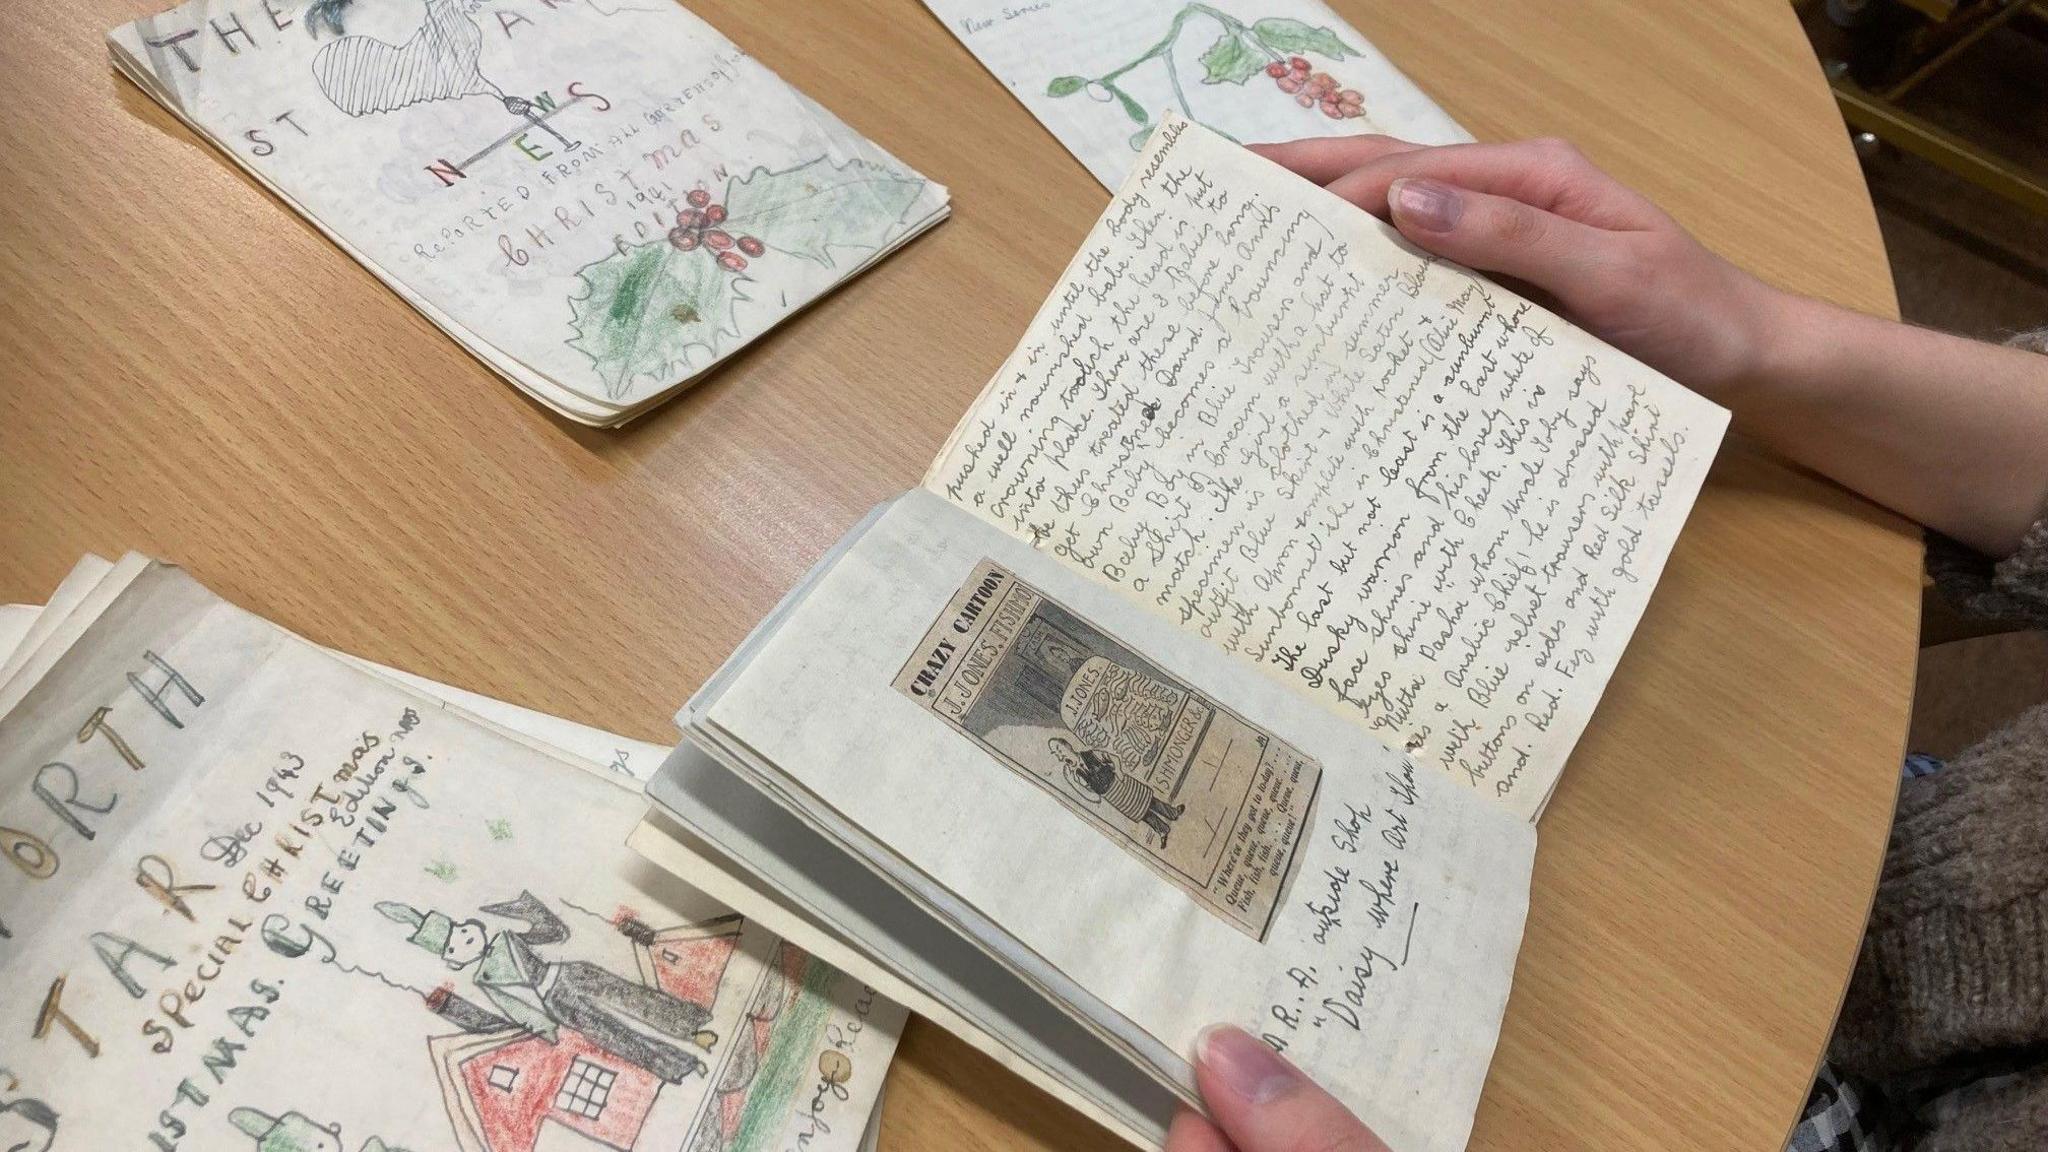 THE
ST AR
NEWS
REPORTED FROM ALL
CHRISTMAS
1941
EDITION
New Series
pushed in + in until the body resembles
a well nourished babe. Then the
crowning touch the head is put
into place. There are 2 Babies to
be thus treated these before long.
get Christned David. James Ann's
own Baby becomes a bouncing
Baby Boy in Blue Trousers and
a Shirt of Cream with a hat to
match. The Girl a sunburnt
specimen is clothed in summer
outfit Blue Skirt + White Satin Blouse
with Apron complete with pocket +
Sunbonnet she is Christened (Alice May)
The last but not least is a sunburnt
Dusky warrior from the East whose
face shines and his lovely white of
Eyes shine with Cheek. This is
Pasha whom Uncle Toby says
is a Arabic Chief! he is dressed
with Blue velvet trousers with pearl
buttons on sides and Red Silk Shirt
and. Red. Fez with gold tassels.
CRAZY CARTOON
J. JONES, FISHMO
J. JONES.
ISHMONGER &c
"Where've they got to today? ....
Queue, queue, queue, queue ....
Fish, fish, fish .... Queue, queue,
queue, queue!"
A R.A. outside Shop
"Daisy where Art Thou"
ORTH
STAR
Dec 1943
SPECIAL CHRISTmas
Edition
ISTMAS. GREETINGS.
Enjoy